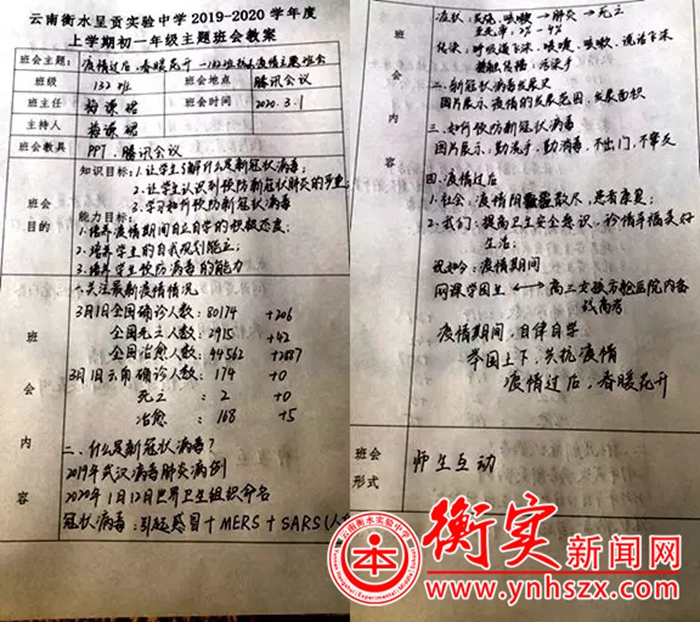 云南衡水呈贡实验中学2019-2020学年度
上学期初一年级主题班会教案
班会主题: 疫情过后、春暖花开 —132班抗击疫情主题班会
班级 132班 班会地点 腾讯会议
班主任 班会时间 2020.3.1
主持人
班会教具 PPT、腾讯会议
班会目的
知识目标:1.让学生了解什么是新冠状病毒;
2.让学生认识到预防新冠状肺炎的严重;
3.学习如何预防新冠状病毒
能力目标:
1.培养疫情期间自立自学的积极态度;
2.培养学生的自我规划能力;
3.培养学生预防病毒的能力
班会内容
一.关注最新疫情情况
3月1日全国确诊人数: 80174 +206
全国死亡人数: 2915 +42
全国治愈人数: 44562 +2887
3月1日云南确诊人数: 174 +0
死亡 : 2 +0
治愈 : 168 +5
二.什么是新冠状病毒?
2019年武汉病毒肺炎病例
2020年1月12日世界卫生组织命名
冠状病毒:引起感冒+MERS+SARS(人
班会内容
症状:发烧、咳嗽→肺炎→死亡
死亡率:2%-4%
传染:呼吸道飞沫、咳嗽、说话飞沫
接触传播:污染手
二.新冠状病毒发展史
图片展示疫情的发展范围、发展面积
三.如何预防新冠状病毒
图片展示、勤洗手、勤消毒、不出门、不聚灵
四.疫情过后
1.社会:疫情阴霾散尽,患者康复;
2.我们:提高卫生安全意识,珍惜幸福美好
生活;
视如今:疫情期间
网课学困生 ⟷ 高三女孩方舱医院内备
战高考
疫情期间,自律自学
举国上下,共抗疫情
疫情过后,春暖花开
班会形式 师生互动
云南衡水实验中学
衡实新闻网
www.ynhszx.com